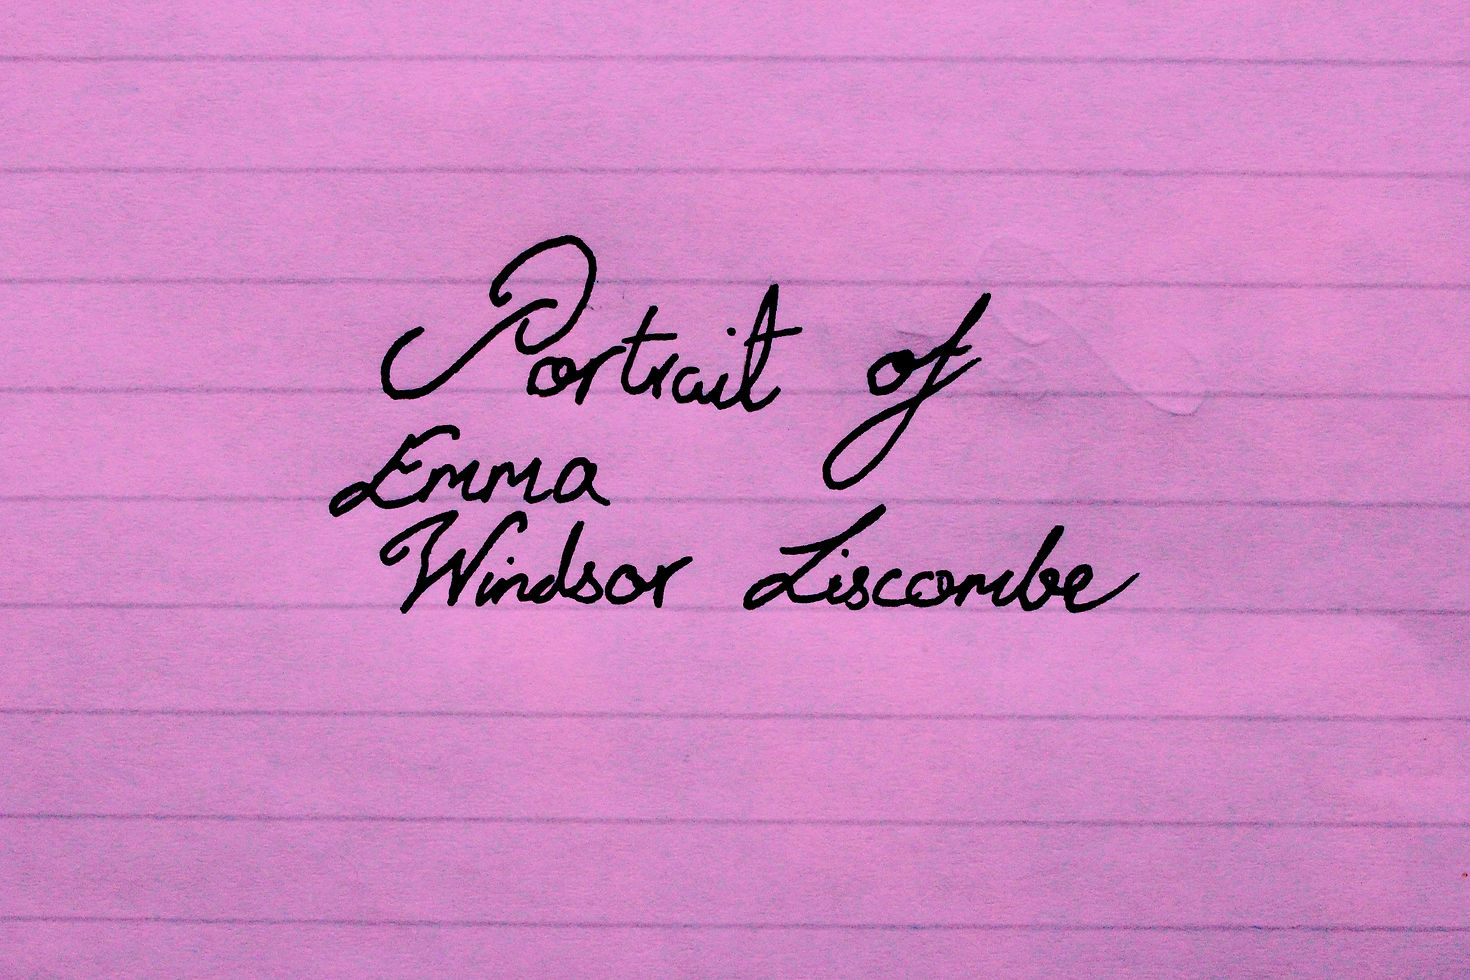 Portrait of
Emma
Windsor Liscombe